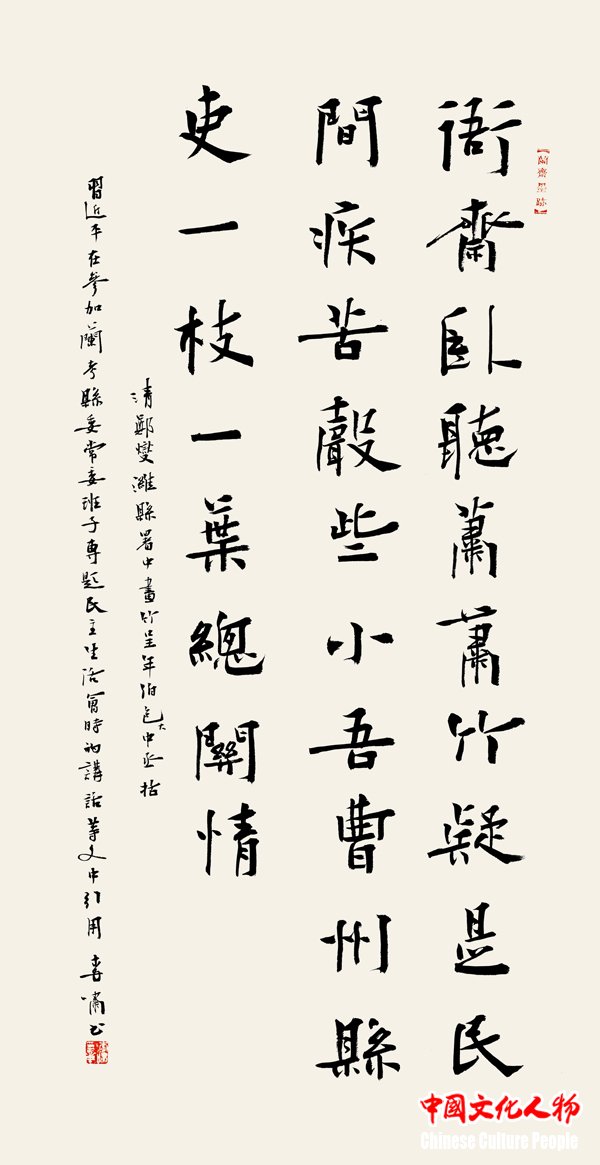 【蘭齋墨跡】
衙齋臥聽蕭蕭竹疑是民
間疾苦聲些小吾曹州縣
吏一枝一葉總關情
清鄭燮濰縣署中畫竹呈年伯包大中丞括
習近平在參加蘭考縣委常委班子專題民主生活會時的講話等文中引用 嘯書
中國文化人物
Chinese Culture People